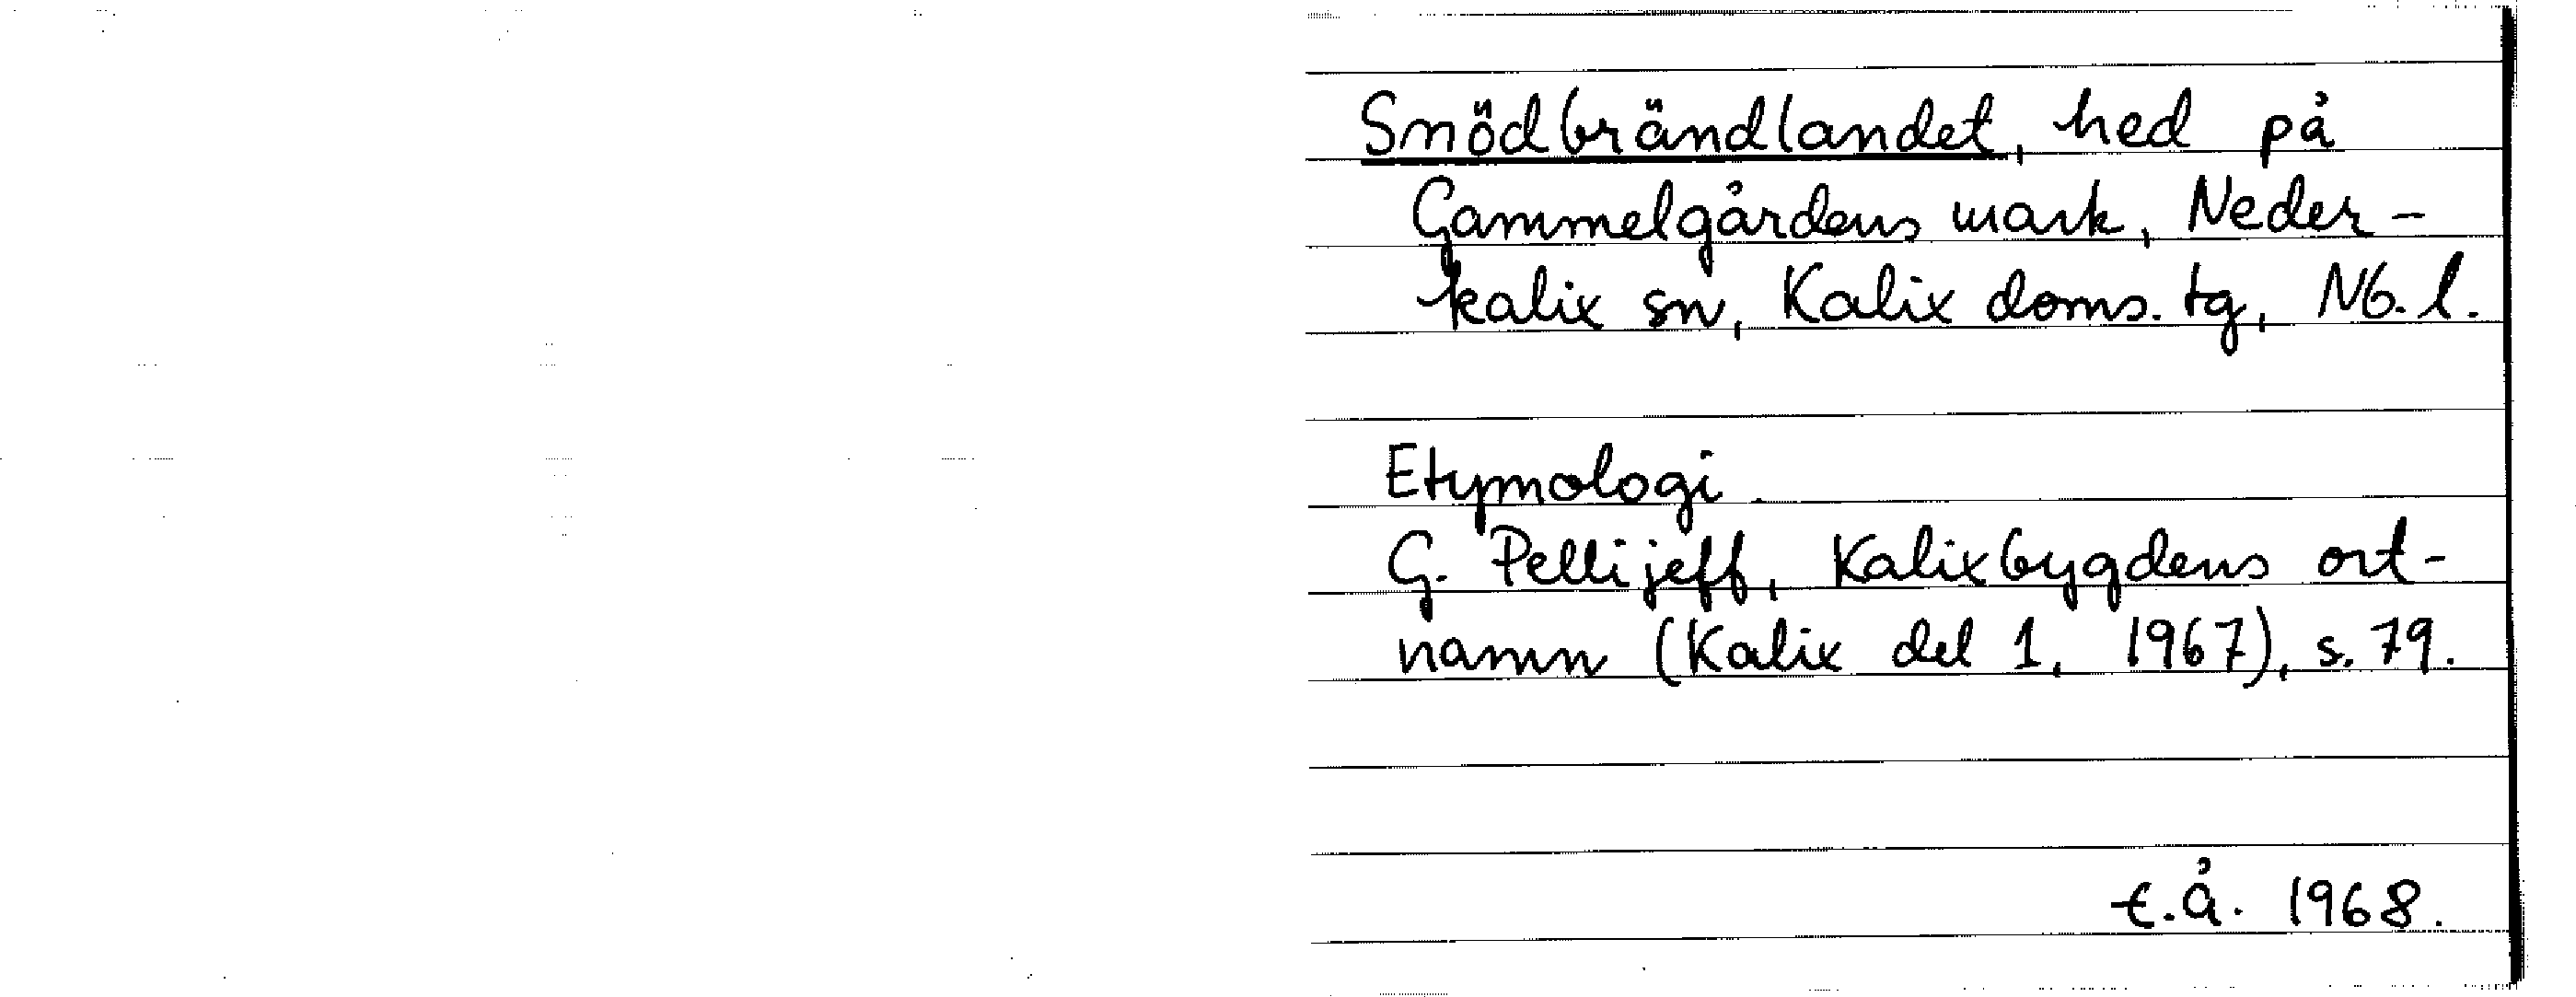 Snödbrändlandet, hed på
Gammelgårdens mark, Neder-
kalix sn, Kalix doms. tg, Nb. l.
Etymologi.
G. Pellijeff, Kalixbygdens ort-
namn (Kalix del 1, 1967), s. 79.
t.å. 1968.